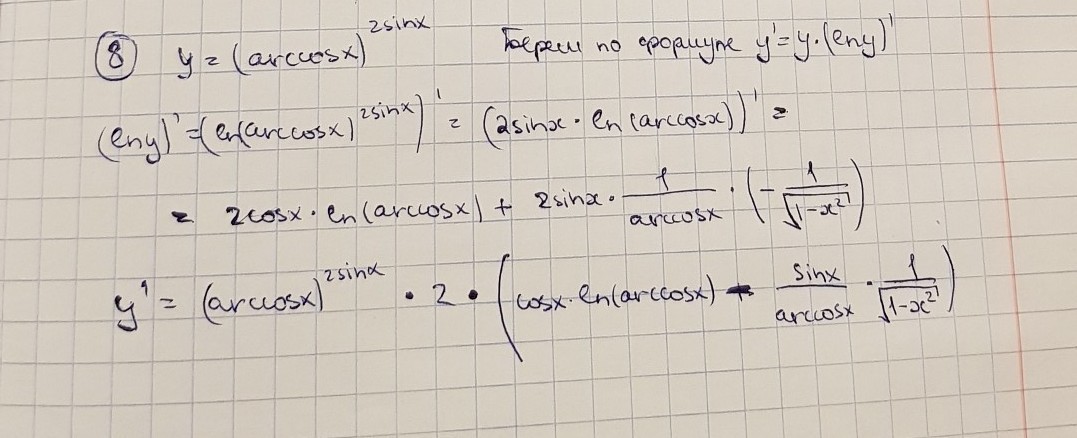 ⑧ y = (arccosx)^2sinx Берем по формуле y' = y·(lny)'
(lny)' = (ln(arccosx)^2sinx)' = (2sinx · ln(arccosx))' =
= 2cosx · ln(arccosx) + 2sinx · 1/arccosx · (-1/√(1-x²))
y' = (arccosx)^2sinx · 2 · (cosx · ln(arccosx) - sinx/arccosx · 1/√(1-x²))